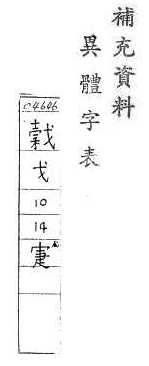 補充資料
異體字表
C4606
戈
10
14